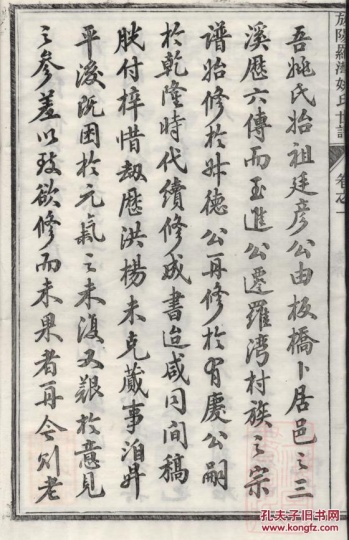 旌陽羅灣姚氏世譜
卷之一
吾姚氏始祖廷彥公由板橋卜居邑之三
溪歷六傳而玉進公遷羅灣村族之宗
譜始修於升德公再修於有慶公嗣
於乾隆時代續修成書迨咸同間稿
脫付梓惜劫歷洪楊未克蕆事洎昇
平後既困於元氣之未復又艱於意見
之參差以致欲修而未果者再今則老
孔夫子旧书网